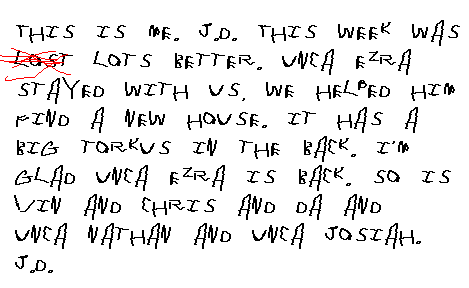 THIS IS ME. J.D. THIS WEEK WAS
LOST LOTS BETTER. UNCA EZRA
STAYED WITH US. WE HELPED HIM
FIND A NEW HOUSE. IT HAS A
BIG TORKUS IN THE BACK. I'M
GLAD UNCA EZRA IS BACK. SO IS
VIN AND CHRIS AND DA AND
UNCA NATHAN AND UNCA JOSIAH.
J.D.